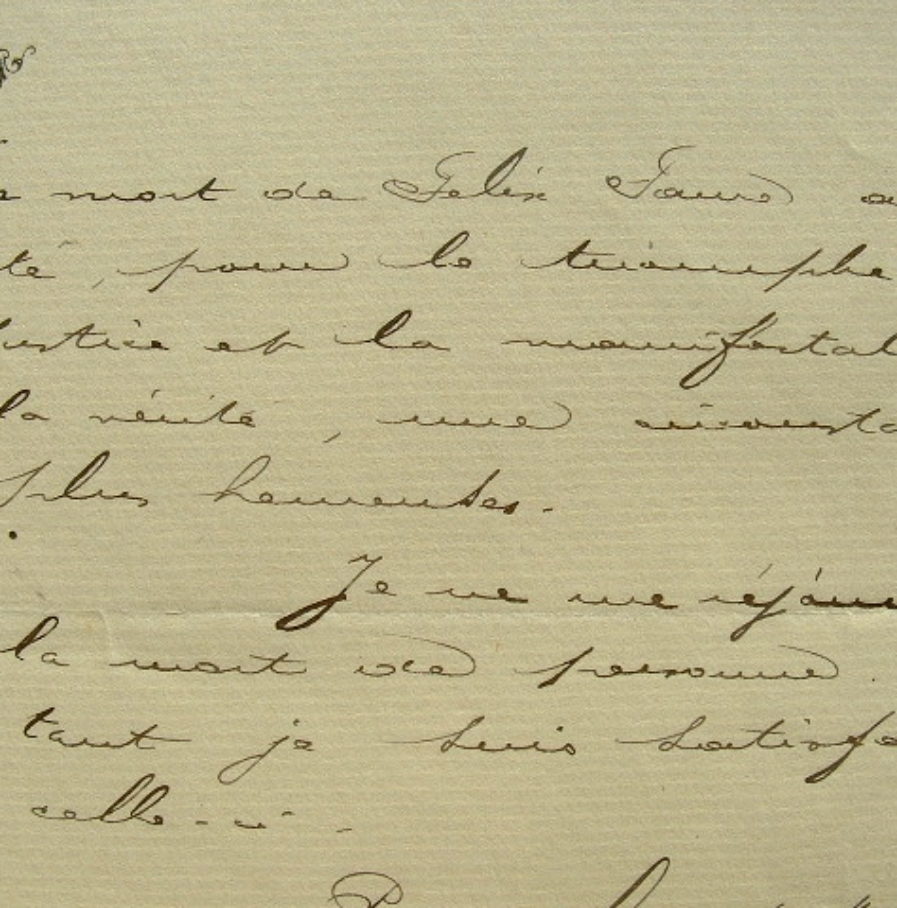 mort de Felix Faure a
té, pour le triomphe
justice et la manifestat
la vérité, une circonsta
plus heureuses.
Je ne me réjoui
la mort de personne.
tant je suis satisfa
celle-ci.